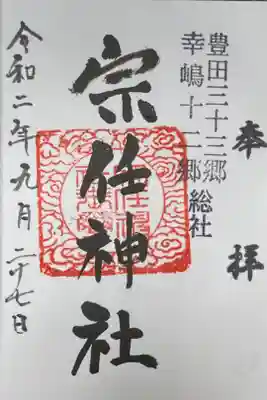 奉拝
豊田三十三郷
幸嶋十二郷 総社
宗任神社
令和二年九月二十七日